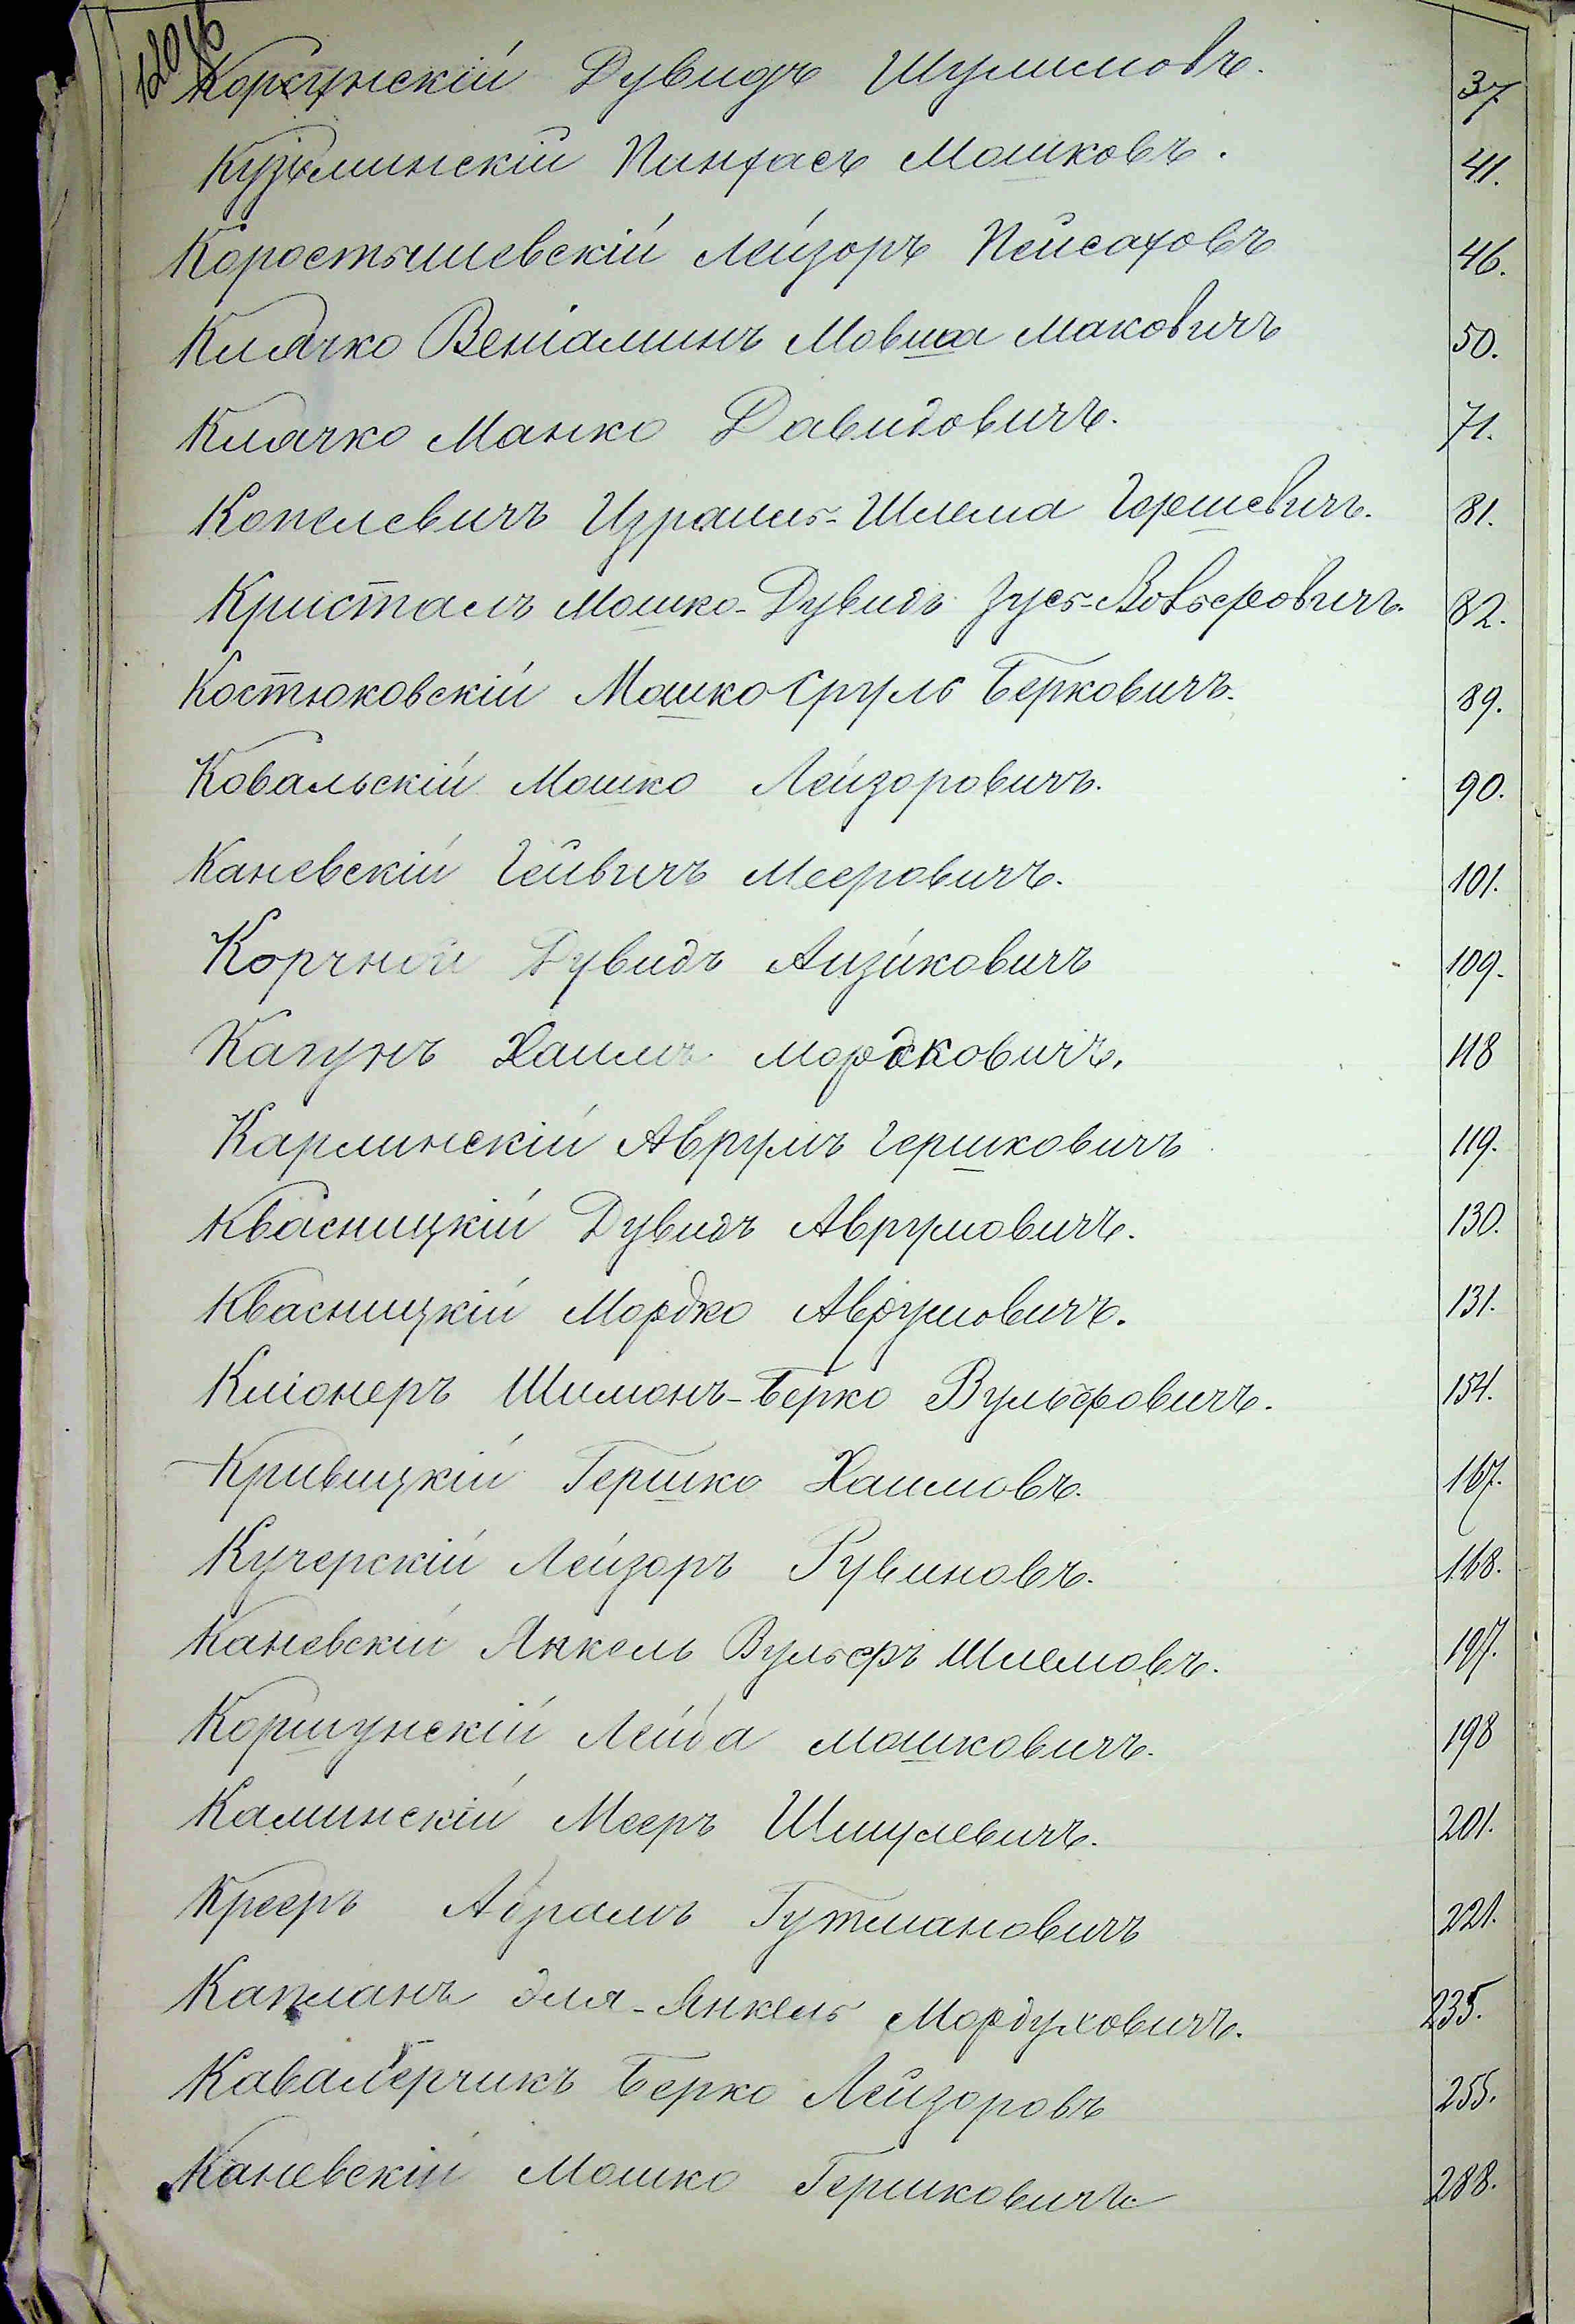 Корсунскій Дувидъ Шулимовъ. 37
Кузьминскій Пинхасъ Мошковъ. 41.
Коростышевскій Лейзоръ Пейсаховъ 46.
Клячко Веніаминъ Мовша Маковичъ 50.
Клячко Манко Давидовичъ. 71.
Копелевичъ Израиль-Шлема Гершевичъ. 81.
Кристалъ Мошко-Дувидъ Зусь-Вольфовичъ. 82.
Костюковскій Мошко Сруль Берковичъ. 89.
Ковальскій Мошко Лейзоровичъ. 90.
Каневскій Гейвичъ Мееровичъ. 101.
Корчной Дувидъ Айзиковичъ 109.
Кагунъ Хаимъ Мордковичъ. 118
Карлинскій Аврумъ Гершковичъ 119.
Квасницкій Дувидъ Аврумовичъ. 130.
Квасницкій Мордко Аврумовичъ. 131.
Кліонеръ Шимонъ-Берко Вульфовичъ. 154.
Кривицкій Гершко Хаимовъ. 167.
Кучерскій Лейзоръ Рувиновъ. 168.
Каневскій Янкель Вульфъ Шлемовъ. 197.
Коршунскій Лейба Мошковичъ. 198
Каминскій Мееръ Шмулевичъ. 201.
Крееръ Абрамъ Гутмановичъ 221.
Капланъ Эля-Янкель Мордуховичъ. 235.
Кавалерчикъ Берко Лейзоровъ 255.
Каневскій Мошко Гершковичъ 288.